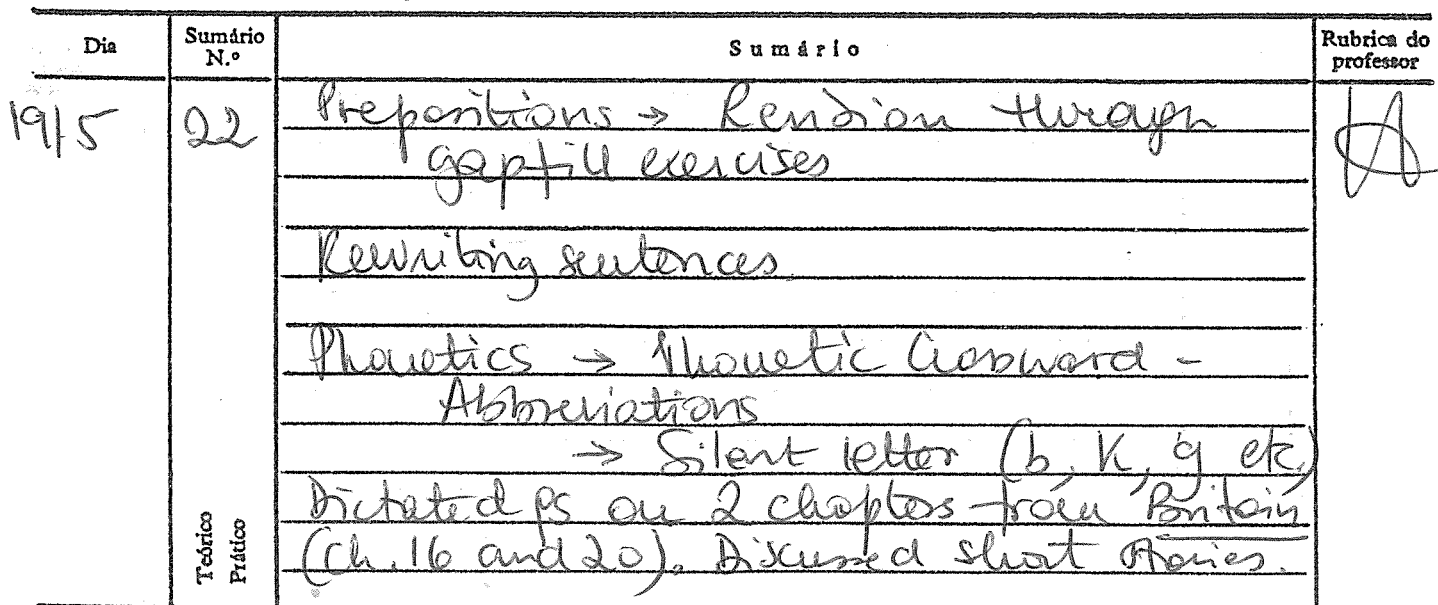 Dia
Sumário N.º
Sumário
Rubrica do professor
19/5
22
Prepositions → Revision through
gapfill exercises
Rewriting sentences
Phonetics → Phonetic Crossword -
Abbreviations
→ Silent letter (b, k, g etc)
Dictated on 2 chapters from Britain
(Ch. 16 and 20). Discussed short stories.
Teórico
Prático